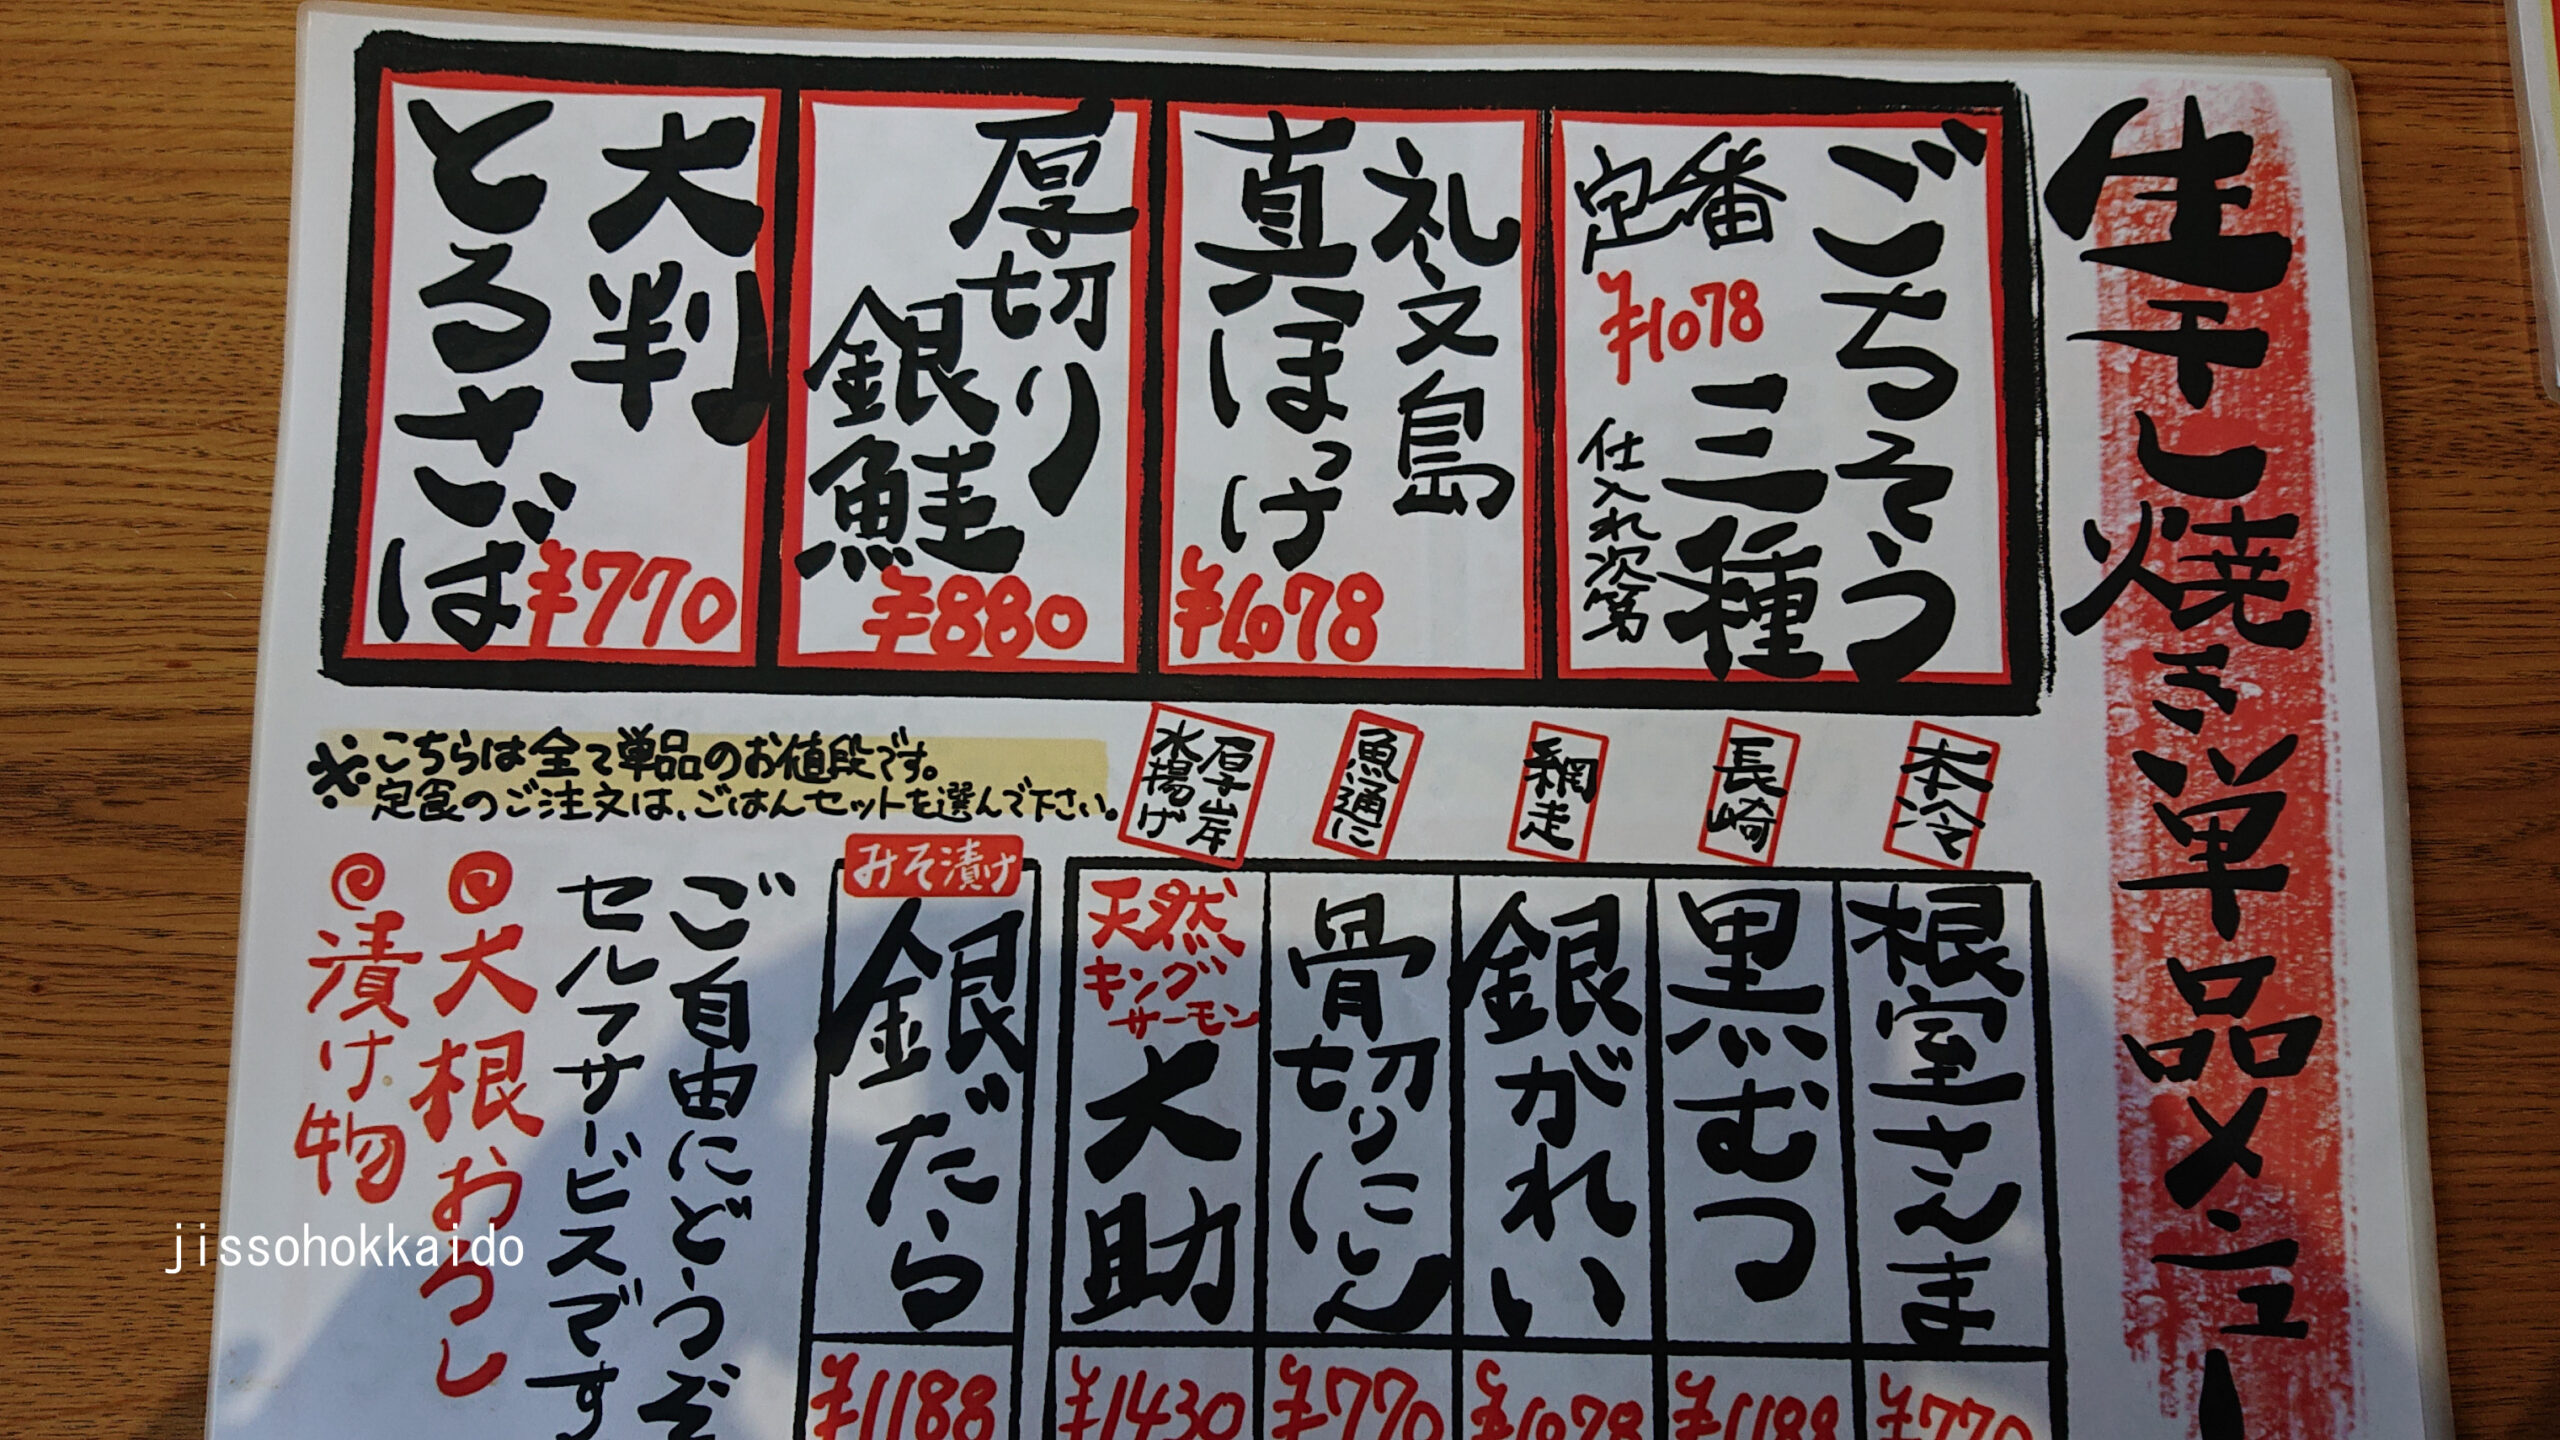 生干し焼き単品メニュー
ごちそう
三種
定番
¥1078
仕入れ次第
礼文島
真ほっけ
¥1078
厚切り
銀鮭
¥880
大判
とろさば
¥770
※こちらは全て単品のお値段です。
定食のご注文は、ごはんセットを選んで下さい。
本冷
根室さんま
¥770
長崎
黒むつ
¥1188
網走
銀がれい
¥1078
魚通に
骨切りにしん
¥770
厚岸
水揚げ
天然
キング
サーモン
大助
¥1430
みそ漬け
銀だら
¥1188
ご自由にどうぞ
セルフサービスです
大根おろし
漬け物
jissohokkaido